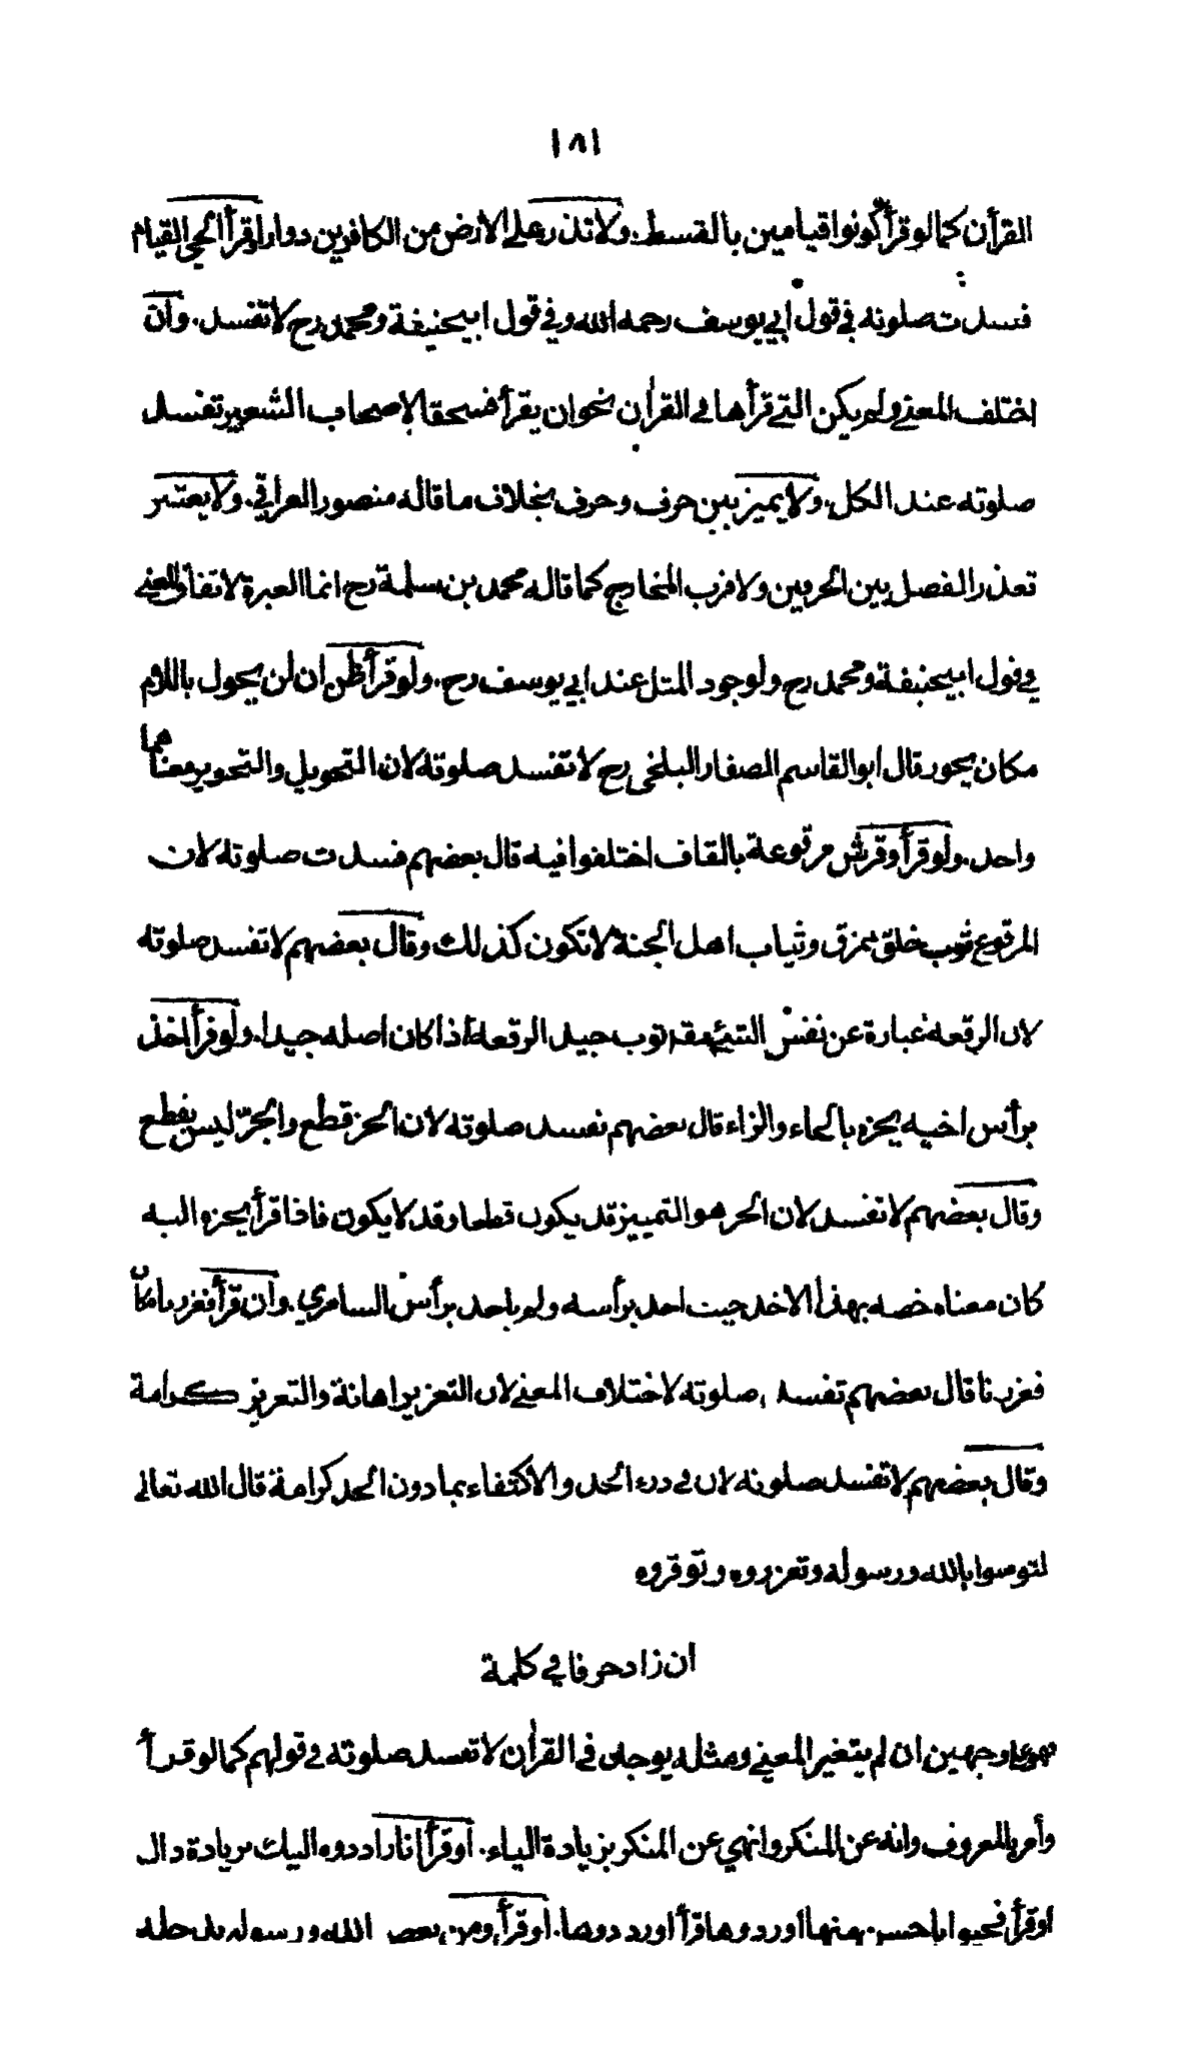 ١٨١
القرأن كما لو قرأ كونوا قيامين بالقسط . ولا تذر على الارض من الكافرين دوارا وقرأ الحي القيام
فسدت صلوته في قول ابي يوسف رحمه الله وفي قول ابيحنيفة ومحمد رح لا تفسد . وان
اختلف المعنى ولم يكن التي قرأها في القرأن نحوان يقرأ فسحقا لاصحاب الشعير تفسد
صلوته عند الكل . ولا يميز بين حرف وحرف بخلاف ما قاله منصور العراقي . ولا يعتبر
تعذر الفصل بين الحرفين ولا قرب المخارج كما قاله محمد بن سلمة رح انما العبرة لاتفاق المعنى
في قول ابيحنيفة ومحمد رح ولوجود المثل عند ابي يوسف رح . ولو قرأ ظن ان لن يحول باللام
مكان يحور قال ابو القاسم الصفار البلخي رح لا تفسد صلوته لان التحويل والتحوير معناهما
واحد . ولو قرأ وقرش مرقوعة بالقاف اختلفوا فيه قال بعضهم فسدت صلوته لان
المرقوع ثوب خلق بمزق وثياب اهل الجنة لا تكون كذلك وقال بعضهم لا تفسد صلوته
لان الرقعة عبارة عن نفس الشئ يقه ثوب جيد الرقعة اذا كان اصله جيدا . ولو قرأ اخذ
برأس اخيه يحزه بالحاء والزاء قال بعضهم تفسد صلوته لان الحز قطع والجر ليس بقطع
وقال بعضهم لا تفسد لان الحز هو التمييز قد يكون قطعا وقد لا يكون فاذا قرأ يحزه اليه
كان معناه خصه بهذا الاخذ حيث اخذ برأسه ولم ياخذ برأس السامري . وان قرأ فعزرنا مكان
فعززنا قال بعضهم تفسد صلوته لاختلاف المعنى لان التعزير اهانة والتعزيز كرامة
وقال بعضهم لا تفسد صلوته لان في درء الحد والاكتفاء بما دون الحد كرامة قال الله تعالى
لتومنوا بالله ورسوله وتعزروه وتوقروه
ان زاد حرفا في كلمة
فهو على وجهين ان لم يتغير المعنى ومثله يوجد في القرأن لا تفسد صلوته في قولهم كما لو قرأ
وأمر بالمعروف وانه عن المنكر وانهي عن المنكر بزيادة الياء . او قرأ انا رادوه اليك بزيادة دال
او قرأ فحيوا باحسن منها او ردوها قرأ او رددوها . او قرأ ومن يعص الله ورسوله يدخله